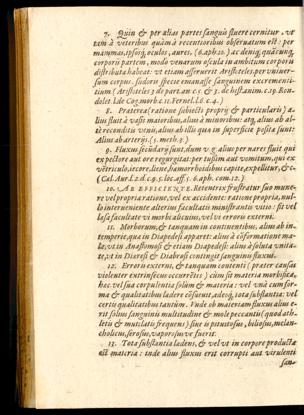 7. Quin & per alias partes sanguis fluere cernitur. ve
tem à veteribus quàm à recentioribus observatum est: per
mammas, ipsosq; oculos, aures. (6.aph.20.) ac deniq; quācunq;
corporis partem, modo venarum oscula in ambitum corporis
distributa habeat: vt etiam asseruerit Aristoteles, per univer-
sum corpus, sudoris specie emanasse sanguinem excrementi-
tium (Aristoteles 3 de part. an c.5 & 3. de hist. anim. c.19. Ron-
dolet. I. de Cog. morb. c.11. Fernel. I.6. c.4.)
8. Praeterea (ratione subiecti proprij & particularis) a-
lius fluit à vasis maioribus, alius à minoribus: atq; alius ab al-
tè reconditis venis, alius ab illis quae in superficie posita sunt:
Alius ab arterijs. (5. meth. 5.)
9. Fluxus secundary sunt, dum v.g. alius per nares fluit qui
ex pectore aut ore regurgitat: per tussim aut vomitum, qui ex
ventriculo, iecore, liene, haemorrhoidibus capite, expellitur, &c.
(Cal. Aur. l.2.d.c.9. 5. loc. aff. 5. 4. aph. com. 12.)
10. AB EFFICIENTE. Retentrix frustratur suo mune-
re vel propria ratione, vel ex accidente: ratione propria, nul-
lo interveniente alterius facultatis ministrantis vitio: sit vel
laesa facultate vi morbi alicuius, vel vi erroris externi.
11. Morborum, & tanquam in continentibus, alius ab in-
temperie, qua in Diapedesi apparet: alius à cōformatione ma-
la, vt in Anastomosi & etiam Diapedesi: alius à soluta vnita-
te, vt in Diaeresi & Diabrosi contingit sanguinis fluxus.
12. Erroris externi, & tanquam contenti (praeter causas
violenter extrinsecus occurrētes) cùm sit materia morbifica,
haec vel sua corpulentia solùm & materia: vel vnà cum for-
ma & qualitatibus ladere cōsuevit, adeoq; tota substantia: vel
certis qualitatibus tantùm. Vnde ob materiam fluxus alius e-
rit solius sanguinis multitudine & mole peccantis (quod ath-
letis & mutilatis frequens) sine is pituitosus, biliosus, melan-
cholicus, serosus, vaporosus ve fuerit.
13. Tota substantia ladens, & vel vt in corpore producta
est materia: inde alius fluxus erit corruptis aut virulenti
san-